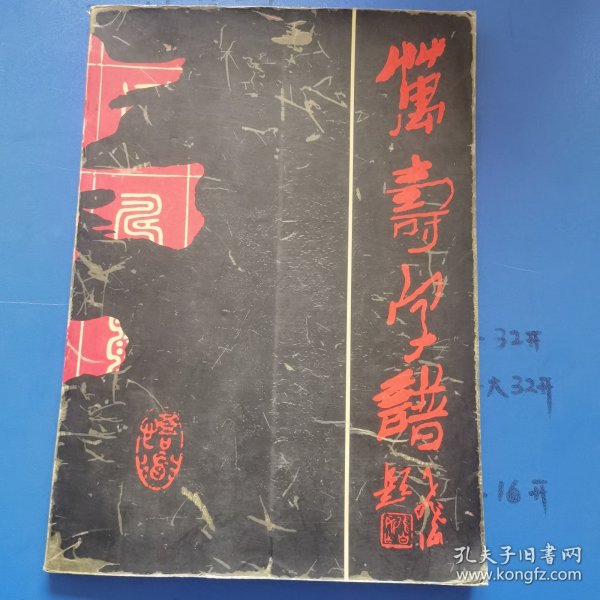 萬壽字譜
题
32开
大32开
16开
孔夫子旧书网
www.kongfz.com